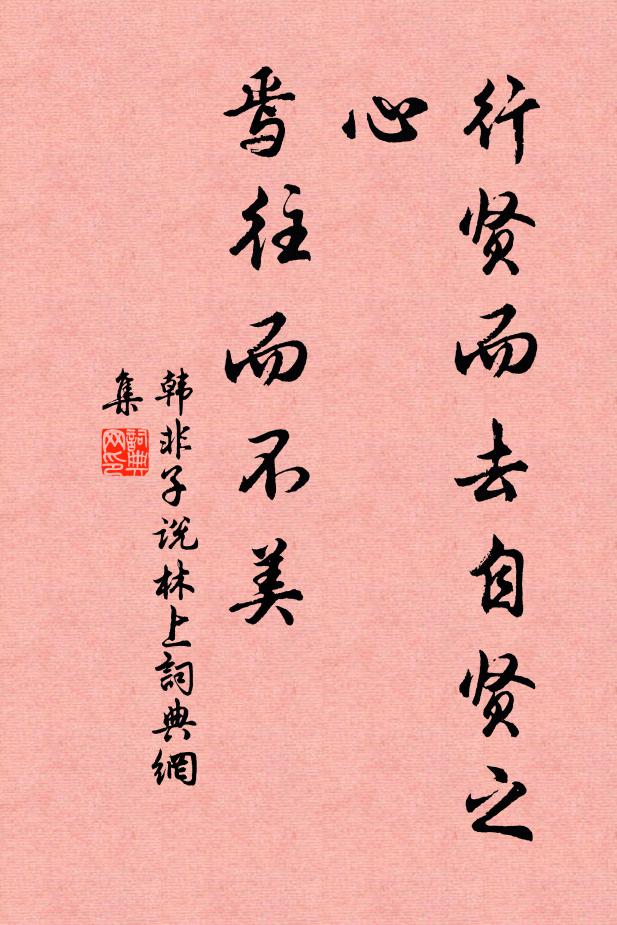 行贤而去自贤之
心
焉往而不美
韩非子说林上詞典網
集
詞典
网印